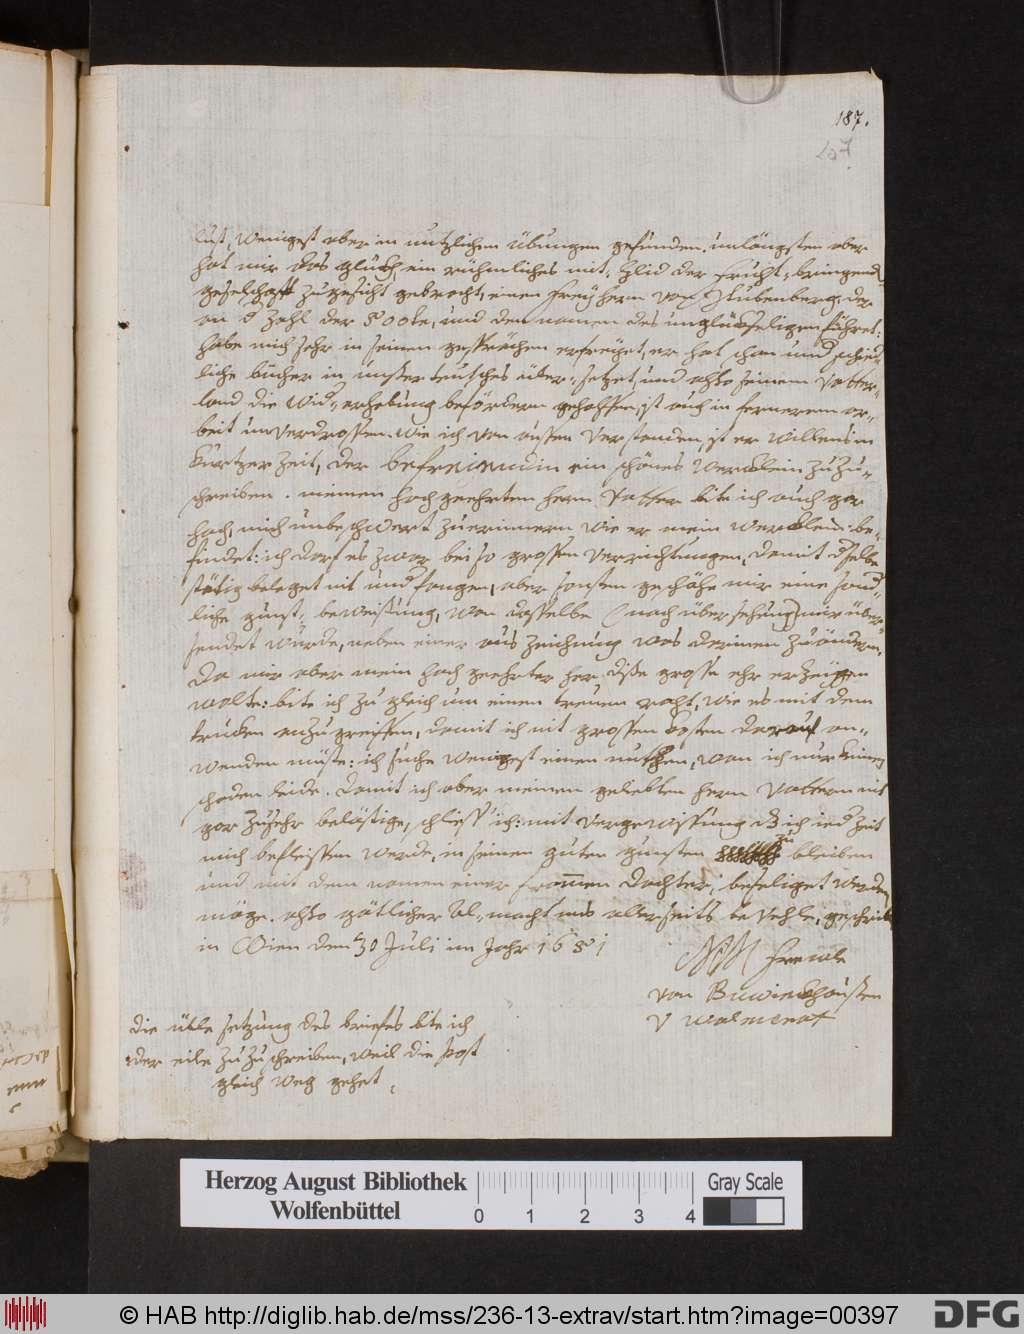 187.
lust, wenigst aber in nutzlichen übungen gefunden. unlängsten aber
hat mir das glück, ein rühmliches mit-glid der frucht-bringend
geselschafft zu gesicht gebracht, einen freyherrn von Stubenberg, der
an d zahl der 500te, und den namen des unglückseligen führet:
habe mich sehr in seinen gesprächen erfreuet, er hat schon und schid-
liche bücher in unser teusches über-setzet, und also seinem vatter-
land die wid-erhebung befördern geholffen, ist auch in fernerem ar-
beit unverdrossen. wie ich von aussen verstanden, ist er willens in
kurtzer zeit, der befreindin ein schönes wercklein zu zu-
schreiben. meinen hoch geehrten herrn vatter bite ich auch gar
hoch, mich unbeschwert zu erinnern wie er mein wercklein be-
findet: ich darf es zwar bei so grossen verrichtungen, damit dselbe
stätig beleget nit und fangen, aber sonsten geschähe mir eine sond-
liche gunst-beweissung, wan dasselbe (nach übersehung) mir über-
sendet würde, neben einer auszeichnung was derinen zu ändern.
Da mir aber mein hoch geehrter her dise grosse ehr erzäigen
wolte: bite ich zu gleich um einen treuen raht, wie es mit dem
trucken anzugreiffen, damit ich nit grossen kosten darauf an-
wenden müste: ich suche wenigst einen nutzen, wan ich nur keinen
schaden leide. Damit ich aber meinen geliebten herrn vattern nit
gar zusehr belästige, schliess ich: mit vergewissung dz ich ied zeit
mich befleissen werde, in seinen guten gunsten zu bleiben
und mit dem namen einer frommen dochter, beseliget werden
möge. also götlicher al-macht uns allerseits bevehle, geschrieben
in Wien den 30 Juli im Jahr 1651
M M freule
von Buwinckhausen
V Walmerot
die üble setzung des briefes bite ich
der eile zu zu schreiben, weil die post
gleich weg gehet.
Herzog August Bibliothek
Wolfenbüttel
0 1 2 3 4
Gray Scale
© HAB http://diglib.hab.de/mss/236-13-extrav/start.htm?image=00397
DFG